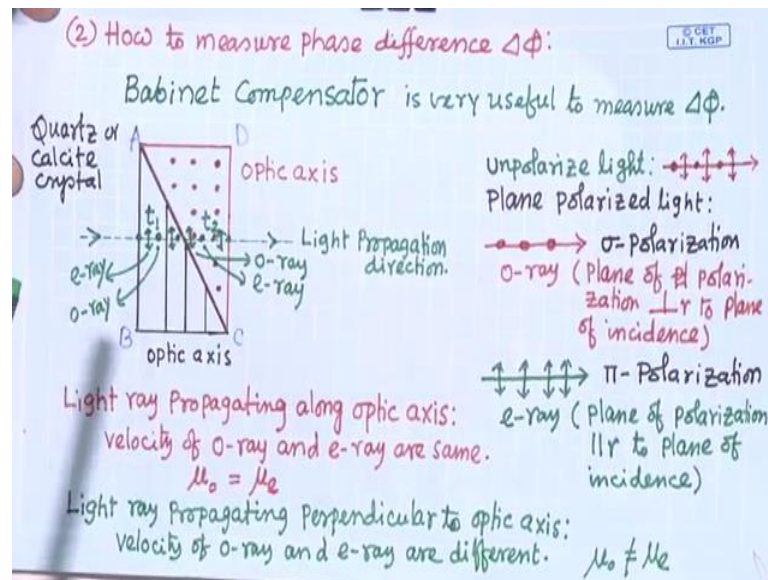 (2) How to measure phase difference ΔΦ:
© CET
I.I.T. KGP
Babinet Compensator is very useful to measure ΔΦ.
Quartz or
calcite
crystal
A
D
optic axis
t₁
t₂
Light Propagation
direction.
e-ray
o-ray
o-ray
e-ray
B
C
optic axis
Unpolarize light:
Plane polarized light:
σ-polarization
o-ray (Plane of polari-
zation ⊥r to plane
of incidence)
Π-Polarization
e-ray (Plane of polarization
||r to plane of
incidence)
Light ray Propagating along optic axis:
velocity of o-ray and e-ray are same.
μ₀ = μe
Light ray Propagating Perpendicular to optic axis:
velocity of o-ray and e-ray are different.
μ₀ ≠ μe